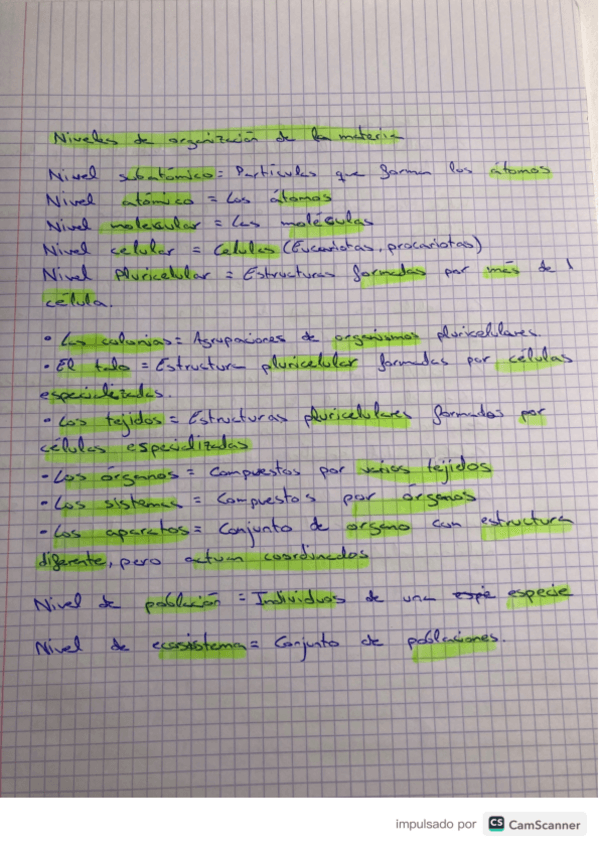 Niveles de organización de la materia
Nivel subatómico = Partículas que forman los átomos
Nivel atómico = Los átomos
Nivel molecular = Las moléculas
Nivel celular = Celulas (Eucariotas, procariotas)
Nivel Pluricelular = Estructuras formadas por más de 1
célula.
• Las colonias = Agrupaciones de organismos pluricelulares.
• El talo = Estructura pluricelular formadas por células
especializadas.
• Los tejidos = Estructuras pluricelulares formados por
células especializadas
• Los órganos = Compuestos por varios tejidos
• Los sistemas = Compuestos por órganos
• Los aparatos = Conjunto de organo con estructura
diferente, pero actuan coordinados
Nivel de población = Individuos de una espé especie
Nivel de ecosistema = Conjunto de poblaciones.
impulsado por CS CamScanner